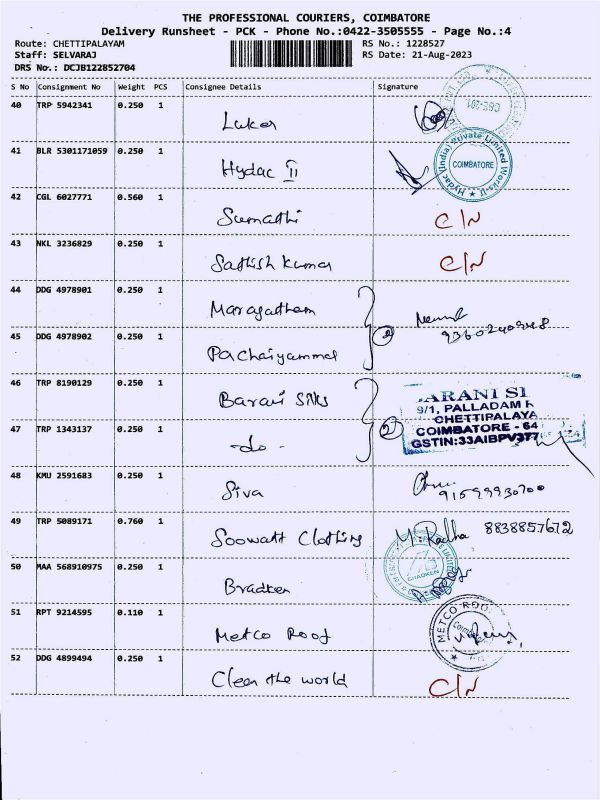 THE PROFESSIONAL COURIERS, COIMBATORE
Delivery Runsheet - PCK - Phone No.:0422-3505555 - Page No.:4
Route: CHETTIPALAYAM RS No.: 1228527
Staff: SELVARAJ RS Date: 21-Aug-2023
DRS No.: DCJB122852704
S No Consignment No Weight PCS Consignee Details Signature
40 TRP 5942341 0.250 1
Luker
41 BLR 5301171059 0.250 1
Hydac II
Hydac (India) Private Limited Works-II
COIMBATORE
42 CGL 6027771 0.560 1
Sumathi C/N
43 NKL 3236829 0.250 1
Sathish Kumar C/N
44 DDG 4978901 0.250 1
Maragatham
9360240948
45 DDG 4978902 0.250 1
Pachaiyammal
2
46 TRP 8190129 0.250 1
Barani Silks
ARANI SI
9/1, PALLADAM R
CHETTIPALAYA
COIMBATORE - 64
GSTIN:33AIBPV377
47 TRP 1343137 0.250 1
-do-
2
48 KMU 2591683 0.250 1
Siva 91599930700
49 TRP 5089171 0.760 1
Soowatt Clothing M. Radha 8838857672
50 MAA 568910975 0.250 1
Bradken
BRADKEN
51 RPT 9214595 0.110 1
Metco Roof
METCO ROO
52 DDG 4899494 0.250 1
Clean the world C/N